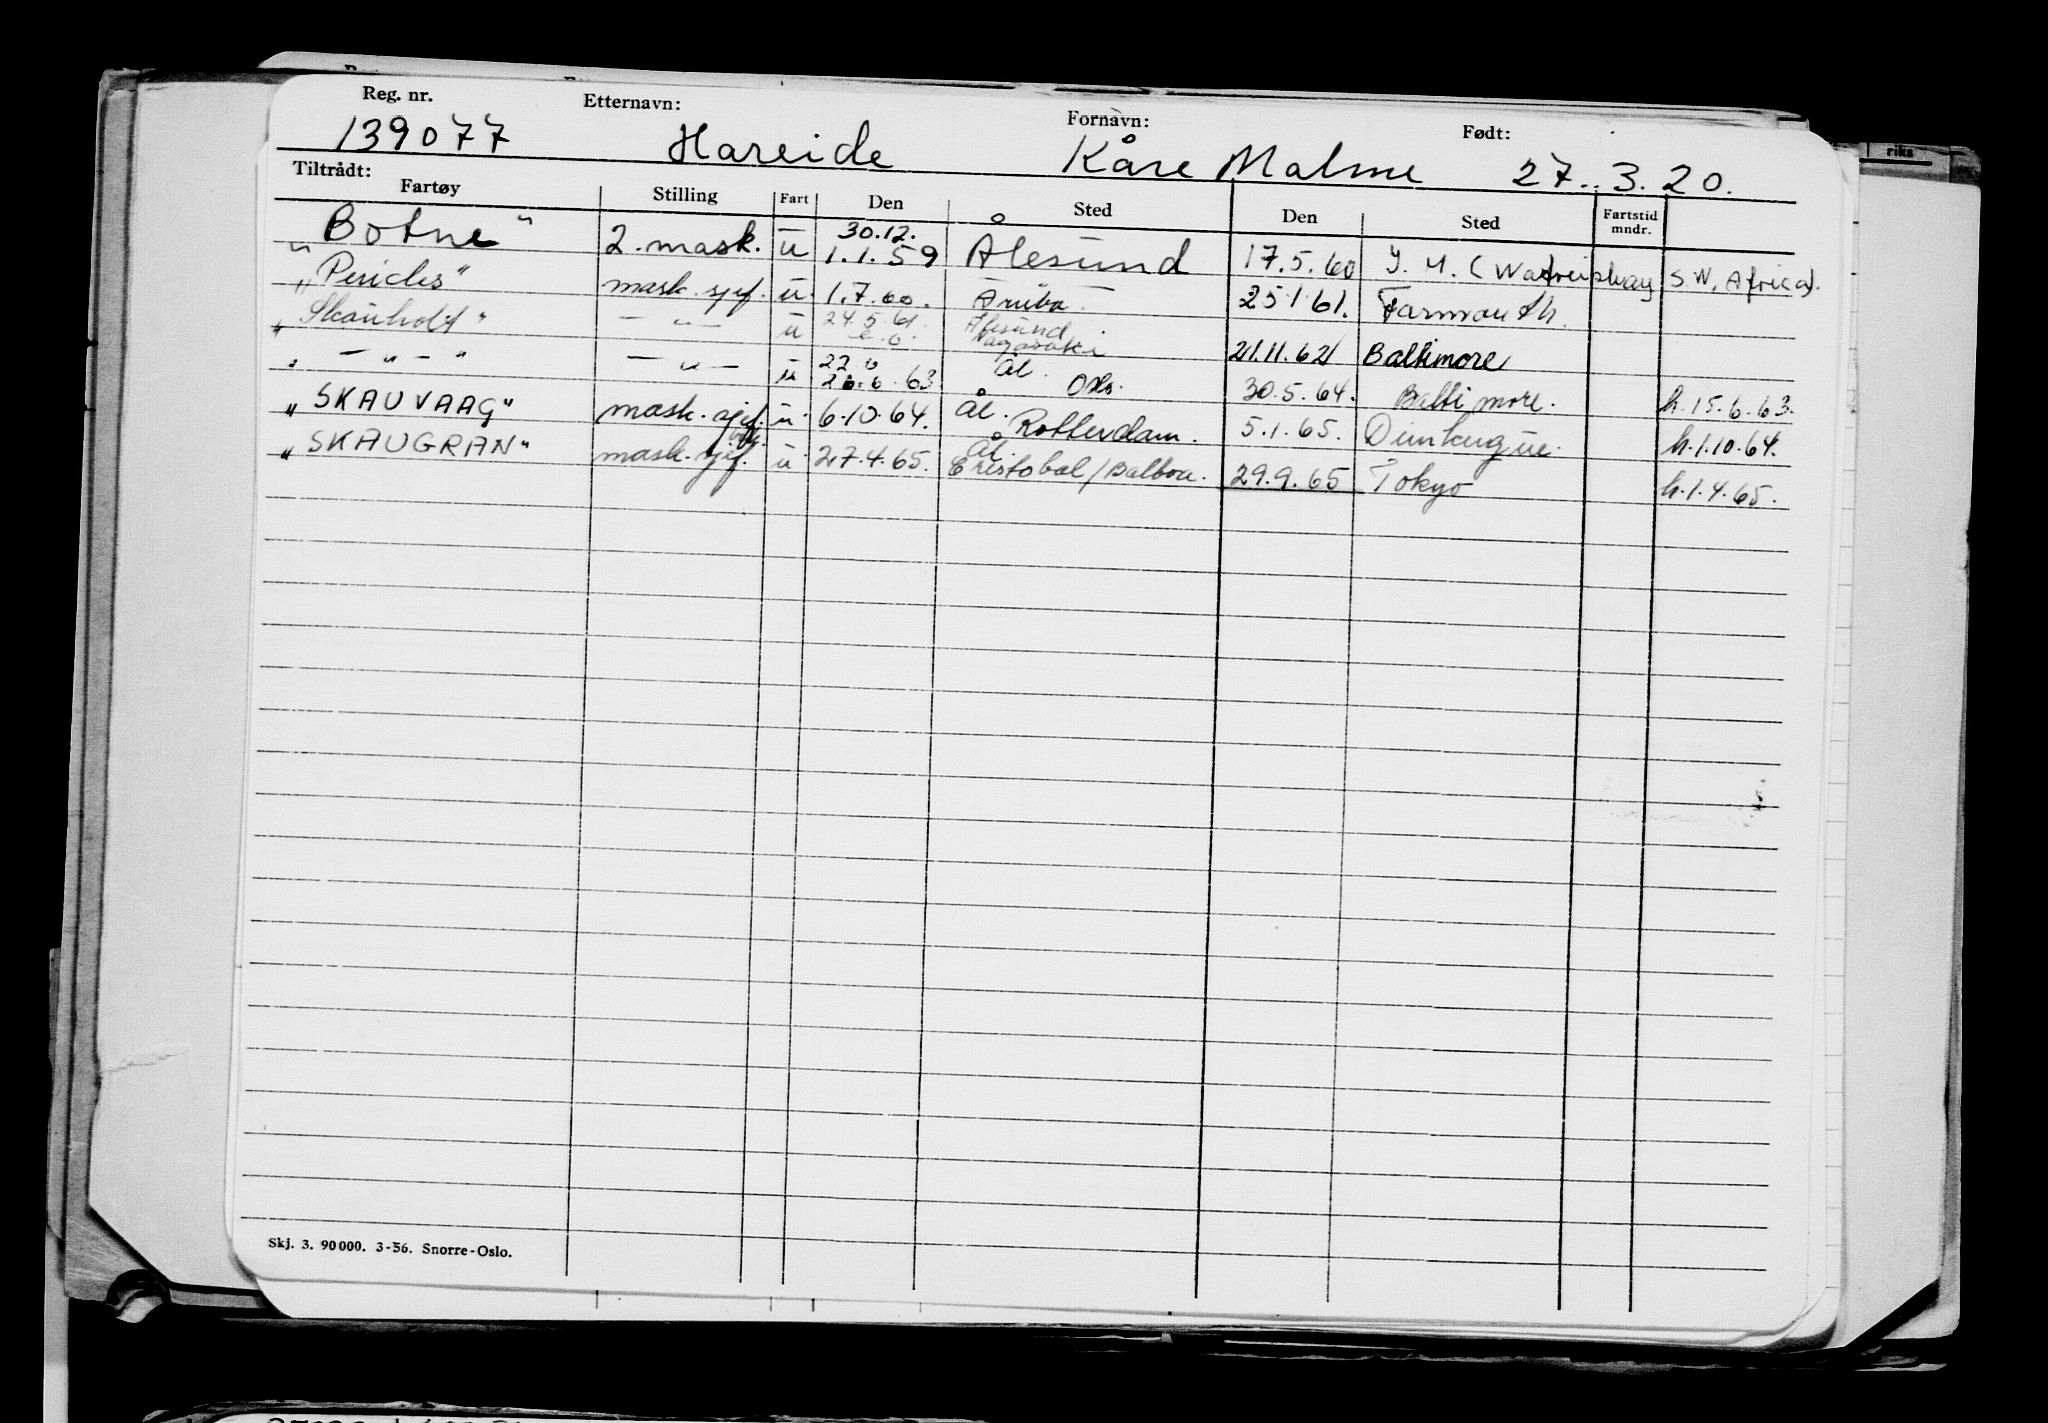 Reg. nr. Etternavn: Fornavn: Født:
139077 Hareide Kåre Malme 27. 3. 20.
Tiltrådt:
Fartøy Stilling Fart Den Sted Den Sted Fartstid mndr.
"Botne" 2. mask. u 30.12. 1.1.59 Ålesund 17.5.60 S.W. Africa).
"Pericles" mask. sjef. u. 1.7.60. Aruba. 25.1.61.
"Skauholt" — " — u 24.5.61. Ålesund Nagasaki 21.11.62 Baltimore
" — " — " — " — u 22.6 26.6.63 Ål. Oslo. 30.5.64. Baltimore. h.15.6.63.
"SKAUVAAG" mask. sjef. u. 6.10.64. Ål. Rotterdam. 5.1.65. h.1.10.64.
"SKAUGRAN" mask. sjef. u. 27.4.65. Ål. Cristobal/Balboa. 29.9.65 Tokyo h.1.4.65.
Skj. 3. 90000. 3-56. Snorre-Oslo.
riks